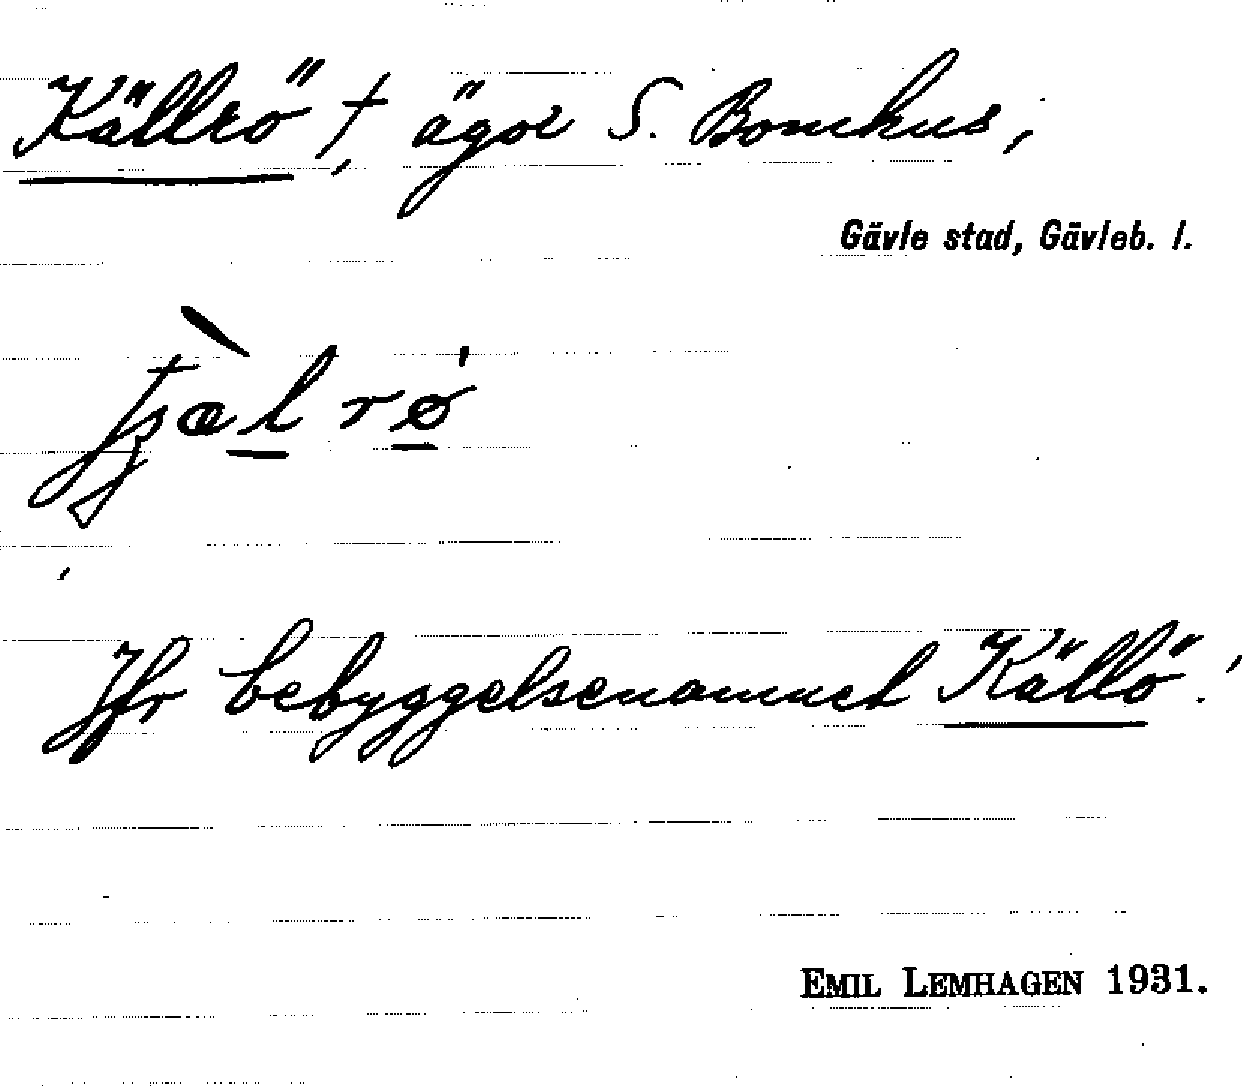 Källrö †, ägor S. Bomhus,
Gävle stad, Gävleb. l.
Jfr bebyggelsenamnet Källö.
EMIL LEMHAGEN 1931.